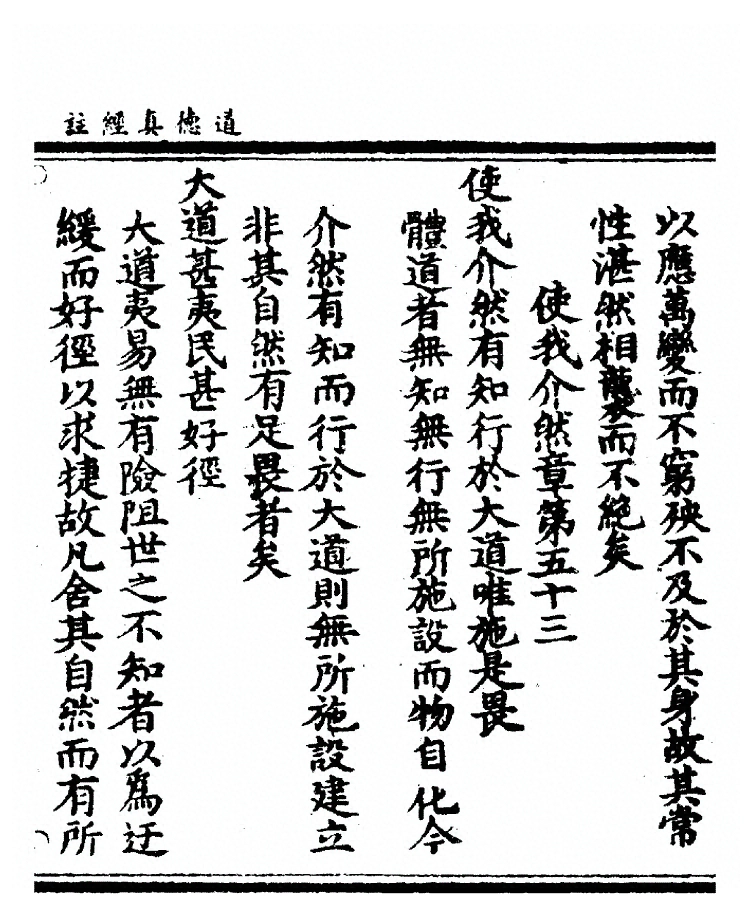 道德真經註
以應萬變而不窮殃不及於其身故其常
性湛然相襲而不絕矣
使我介然章第五十三
使我介然有知行於大道唯施是畏
體道者無知無行無所施設而物自化今
介然有知而行於大道則無所施設建立
非其自然有足畏者矣
大道甚夷民甚好徑
大道夷易無有險阻世之不知者以爲迂
緩而好徑以求捷故凡舍其自然而有所